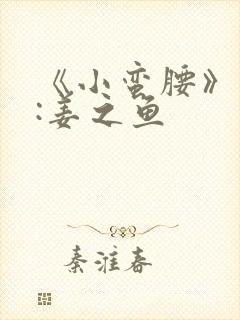 《小蛮腰》
:姜之鱼
秦淮春